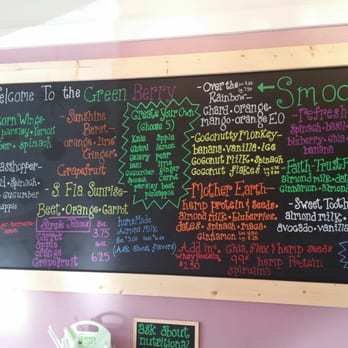 elcome To the Green Berry
Smoo
orn Wings
parsley · lemon
er · spinach
asshopper
spinach
cucumber
apple
Sunshine
Burst
orange · lime
Ginger
Grapefruit
S Fla Sunrise
Beet · Orange · Carrot
Simple Juices
Carrot 3.75
apple
orange
Grapefruit 6.25
homemade
Almond Milk
(Ask about flavors)
Create Your Own
(Choose 5)
Kale apple
chard lemon
celery pear
beet lime
cucumber ginger
carrot
parsley beet
pineapple
Over the
Rainbow
Chard · orange
mango · orange EO
Coconutty Monkey
banana · vanilla · ice
Coconut Milk · Spinach
Coconut flakes
Mother Earth
hemp protein & seeds
almond milk · blueberries
dates · spinach · maca
cinnamon
Add in: Chia, Flax Hemp seeds
whey protein 99¢ hemp Protein
$2.50 spirulina
Refresh
spinach · basil
blueberry · ch
banana
Faith · Trust
almond milk · dat
cinnamon · almon
Sweet Tooth
almond milk
avocado · vanill
ask about
nutritional